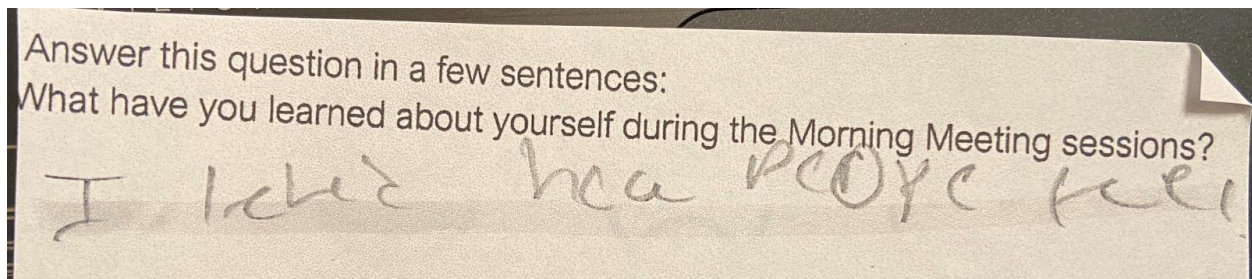 Answer this question in a few sentences:
What have you learned about yourself during the Morning Meeting sessions?
I hca feel